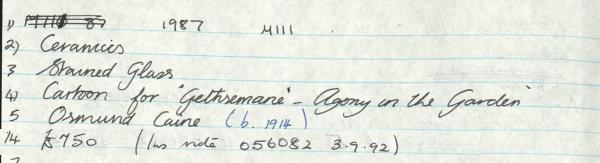 1) M111 87 1987 M111
2) Ceramics
3 Stained Glass
4) Cartoon for 'Gethsemane' - Agony in the Garden'
5 Osmund Caine (b. 1914)
14 £750 (Ins note 056082 3.9.92)